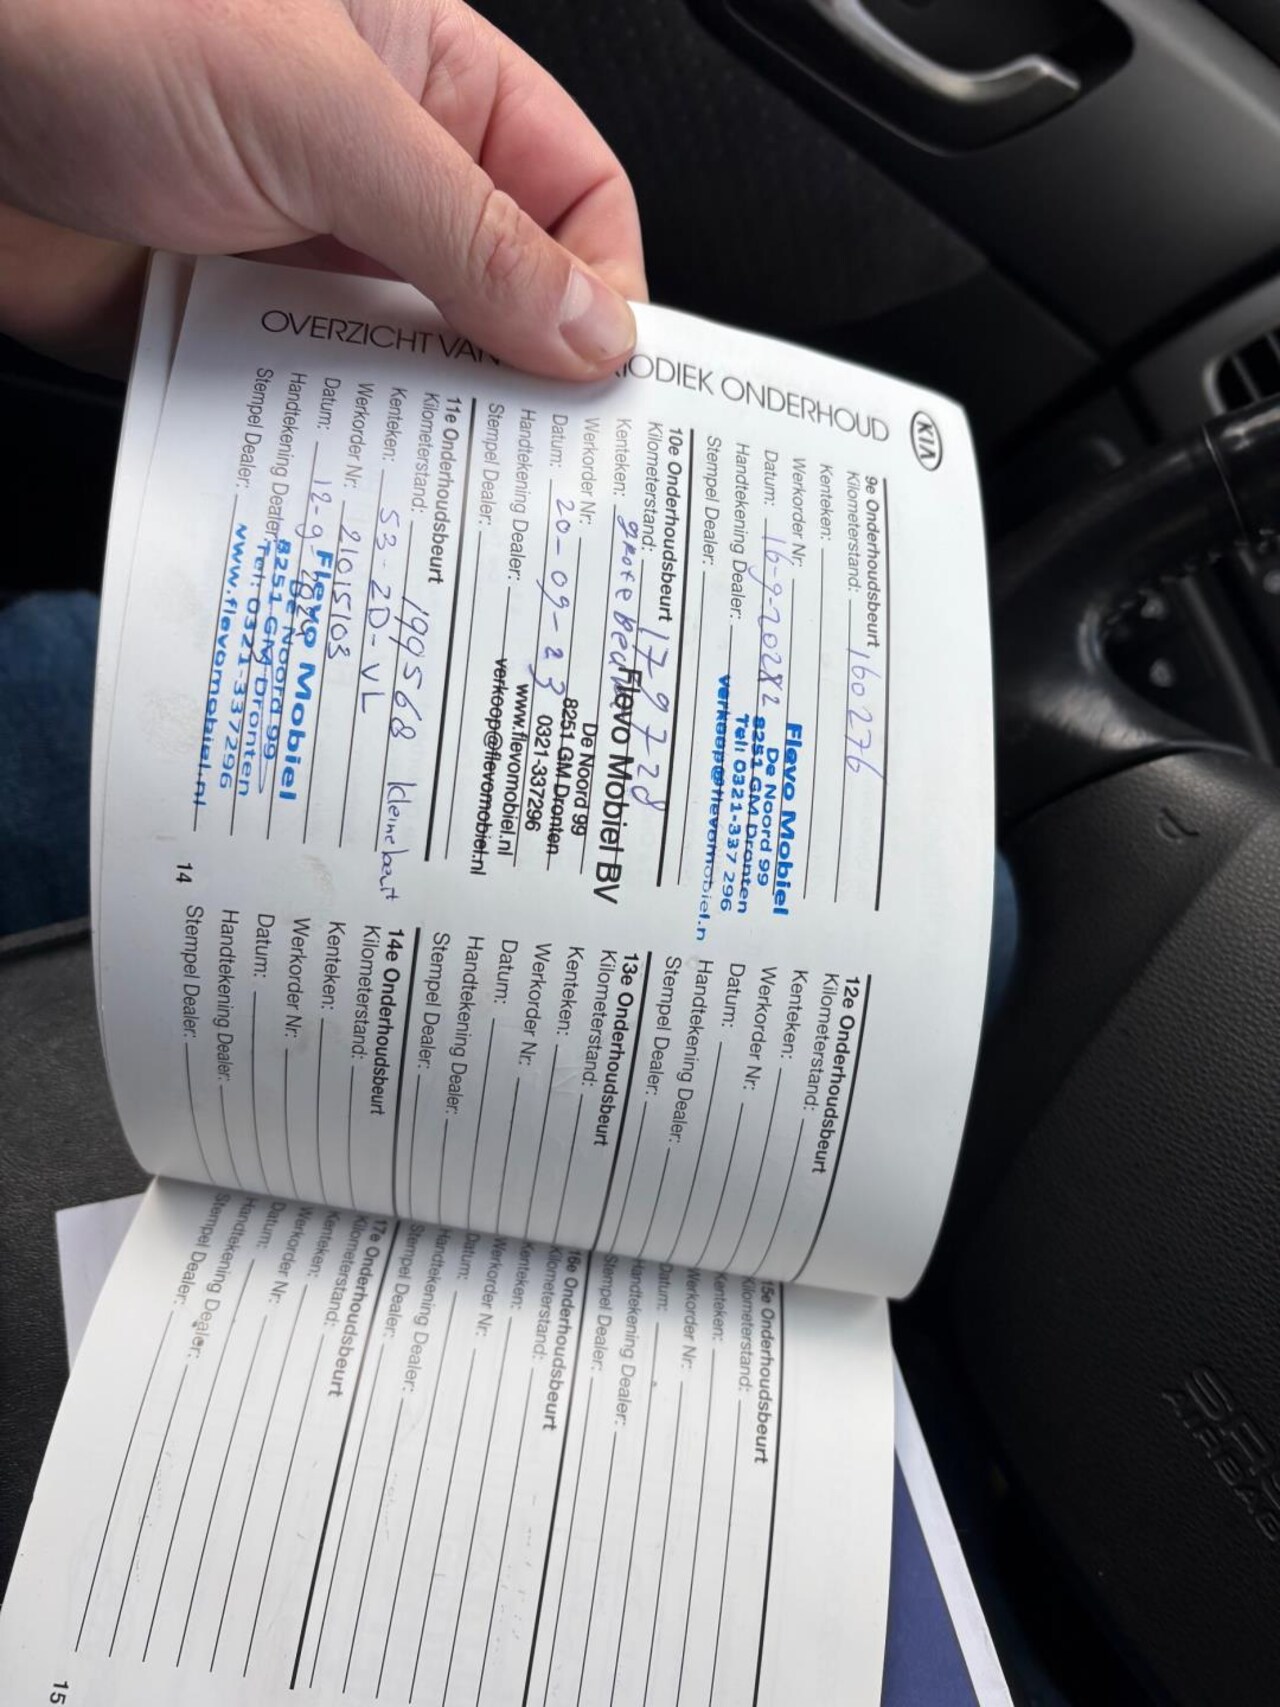 KIA
OVERZICHT VAN IODIEK ONDERHOUD
9e Onderhoudsbeurt
Kilometerstand: 160276
Kenteken:
Werkorder Nr:
Datum: 16-9-2022
Handtekening Dealer:
Stempel Dealer:
Flevo Mobiel
De Noord 99
8251 GM Dronten
Tel: 0321-337 296
verkoop@flevomobiel.n
10e Onderhoudsbeurt
Kilometerstand: 179728
Kenteken: grote
Werkorder Nr:
Datum: 20-09-23
Handtekening Dealer:
Stempel Dealer:
Flevo Mobiel BV
De Noord 99
8251 GM Dronten
0321-337296
www.flevomobiel.nl
verkoop@flevomobiel.nl
11e Onderhoudsbeurt
Kilometerstand: 199568 kleine beurt
Kenteken: 53-ZD-VL
Werkorder Nr: 21015103
Datum: 12-9-2024
Handtekening Dealer:
Stempel Dealer:
Flevo Mobiel
De Noord 99
8251 GM Dronten
Tel: 0321-337296
www.flevomobiel.nl
12e Onderhoudsbeurt
Kilometerstand:
Kenteken:
Werkorder Nr:
Datum:
Handtekening Dealer:
Stempel Dealer:
13e Onderhoudsbeurt
Kilometerstand:
Kenteken:
Werkorder Nr:
Datum:
Handtekening Dealer:
Stempel Dealer:
14e Onderhoudsbeurt
Kilometerstand:
Kenteken:
Werkorder Nr:
Datum:
Handtekening Dealer:
Stempel Dealer:
14
15e Onderhoudsbeurt
Kilometerstand:
Kenteken:
Werkorder Nr:
Datum:
Handtekening Dealer:
Stempel Dealer:
16e Onderhoudsbeurt
Kilometerstand:
Kenteken:
Werkorder Nr:
Datum:
Handtekening Dealer:
Stempel Dealer:
17e Onderhoudsbeurt
Kilometerstand:
Kenteken:
Werkorder Nr:
Datum:
Handtekening Dealer:
Stempel Dealer:
15
SRS
AIRBAG